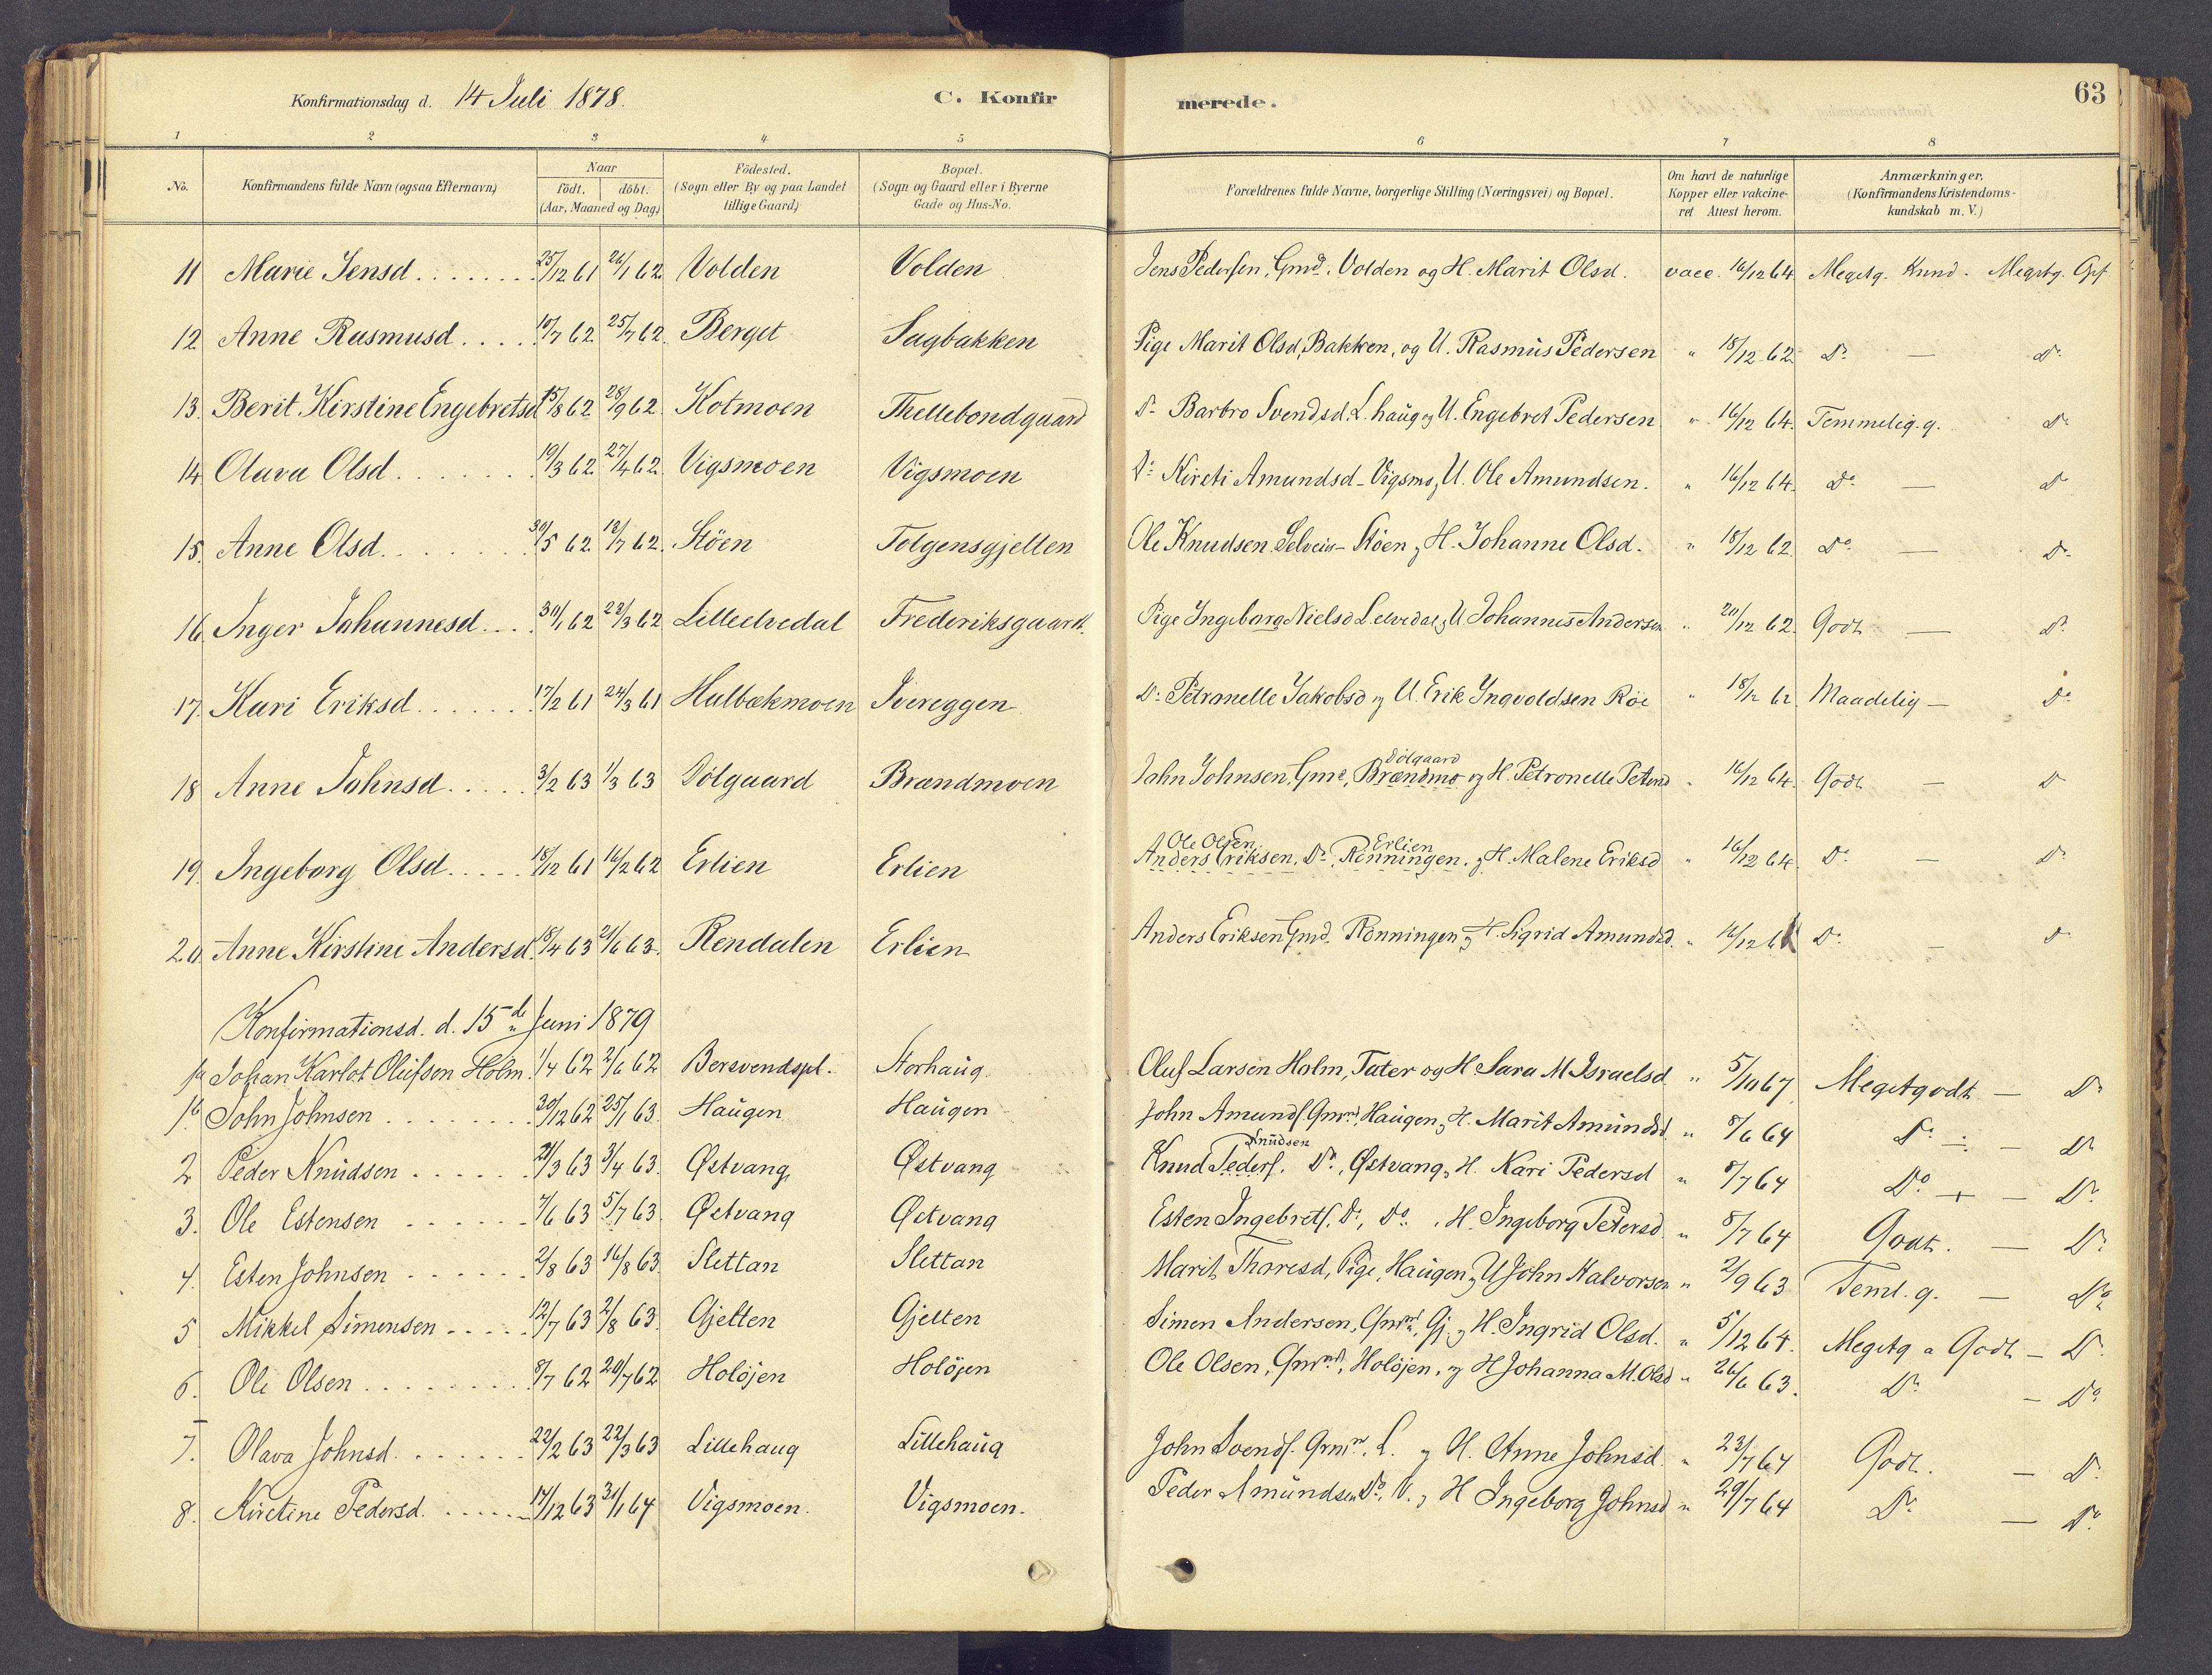 Konfirmationsdag d. 14 Juli 1878. C. Konfirmerede. 63
1 2 3 4 5 6 7 8
No. Konfirmandens fulde Navn (ogsaa Efternavn) Naar födt. döbt. (Aar, Maaned og Dag.) Födested. (Sogn eller By og paa Landet tillige Gaard) Bopæl. (Sogn og Gaard eller i Byerne Gade og Hus-No. Forældrenes fulde Navne, borgerlige Stilling (Næringsvei) og Bopæl. Om havt de naturlige Kopper eller vakcineret Attest herom. Anmærkninger. (Konfirmandens Kristendomskundskab m. V.)
11 Marie Jensd. 25/12 61 26/1 62 Volden Volden Jens Pedersen, Gmd. Volden og H. Marit Olsd. vacc. 16/12 64 Megetg. Kund. Megetg. Opf
12 Anne Rasmusd. 10/7 62 25/7 62. Berget Sagbakken Pige Marit Olsd, Bakken, og U. Rasmus Pedersen " 18/12 62 Do — Do
13. Berit Kirstine Engebretsd 15/8 62 28/9 62. Kotmoen Thellebondgaard Do Barbro Svendsd. L.haug og U. Engebret Pedersen " 16/12 64. Temmelig g. Do
14 Olava Olsd. 19/3 62 27/4 62. Vigsmoen Vigsmoen Do Kirsti Amundsd - Vigsmo, U. Ole Amundsen. " 16/12 64. Do — Do
15. Anne Olsd. 30/5 62 13/7 62. Stöen Tolgensgjelten Ole Knudsen Selveier - Stöen, H. Johanne Olsd. " 18/12 62. Do — Do
16. Inger Johannesd. 30/1 62 23/3 62 Lilleelvedal Frederiksgaard. Pige Ingeborg Nielsd L.elvedal, U Johannes Andersen " 20/12 62. Godt — Do
17. Kari Eriksd. 17/2 61 24/3 61 Hulbækmoen Ivereggen Do Petronelle Jakobsd og U. Erik Ingvoldsen Röe " 18/12 62. Maadelig — Do
18 Anne Johnsd. 3/2 63 1/3 63 Dölgaard Brændmoen John Johnsen, Gmd, Brændmo Dölgaard og H. Petronelle Petersd " 16/12 64. Godt — Do
19. Ingeborg Olsd. 18/12 61 16/2 62 Erlien Erlien Anders Eriksen Ole Olsen, Do, Rönningen Erlien. og H. Malene Eriksd " 16/12 64. Do — Do
20 Anne Kirstine Andersd. 18/4 63 21/6 63. Rendalen Erlien Anders Eriksen Gmd. Rönningen og H. Sigrid Amundsd. " 16/12 Do — Do
Konfirmationsd. d. 15de Juni 1879
1a Johan Karlot Olufson Holm. 1/4 62 2/6 62 Bersvendspl. Storhaug. Oluf Larsen Holm, Tater og H. Sara M Israelsd " 5/10 67 Megetgodt — Do
1b John Johnsen 30/12 62 25/1 63. Haugen Haugen John Amundf. Gmd, Haugen, H. Marit Amundsd " 8/6 64 Do ÷ — Do
2 Peder Knudsen 21/3 63 3/4 63. Østvang Østvang Knud Pederf. Knudsen Do, Østvang, H. Kari Pedersd " 8/7 64 Do + — Do
3. Ole Estensen 7/6 63 5/7 63. Østvang Østvang Esten Ingebretf. Do, Do. H. Ingeborg Petersd " 8/7 64 Godt. — Do
4. Esten Johnsen 2/8 63 16/8 63. Slettan Slettan Marit Tharesd, Pige, Haugen, U John Halvorsen " 2/9 63 Teml. g. — Do
5 Mikkel Simensen 12/7 63 2/8 63. Gjelten Gjelten Simen Andersen, Gmd, Gj. og H. Ingrid Olsd. " 5/12 64. Megetg a Godt — Do
6. Ole Olsen 8/7 62 20/7 62 Holöjen Holöjen Ole Olsen, Gmd, Holöjen, og H Johanna M. Olsd " 26/6 63. Do — Do
7. Olava Johnsd. 22/2 63 22/3 63 Lillehaug Lillehaug John Svendf. Gmd, L. og H. Anne Johnsd. " 23/7 64 Godt. — Do
8. Kirstine Pedersd. 17/12 63 31/1 64 Vigsmoen. Vigsmoen. Peder Amundsen Do, V. og H Ingeborg Johnsd " 29/7 64 Do — Do